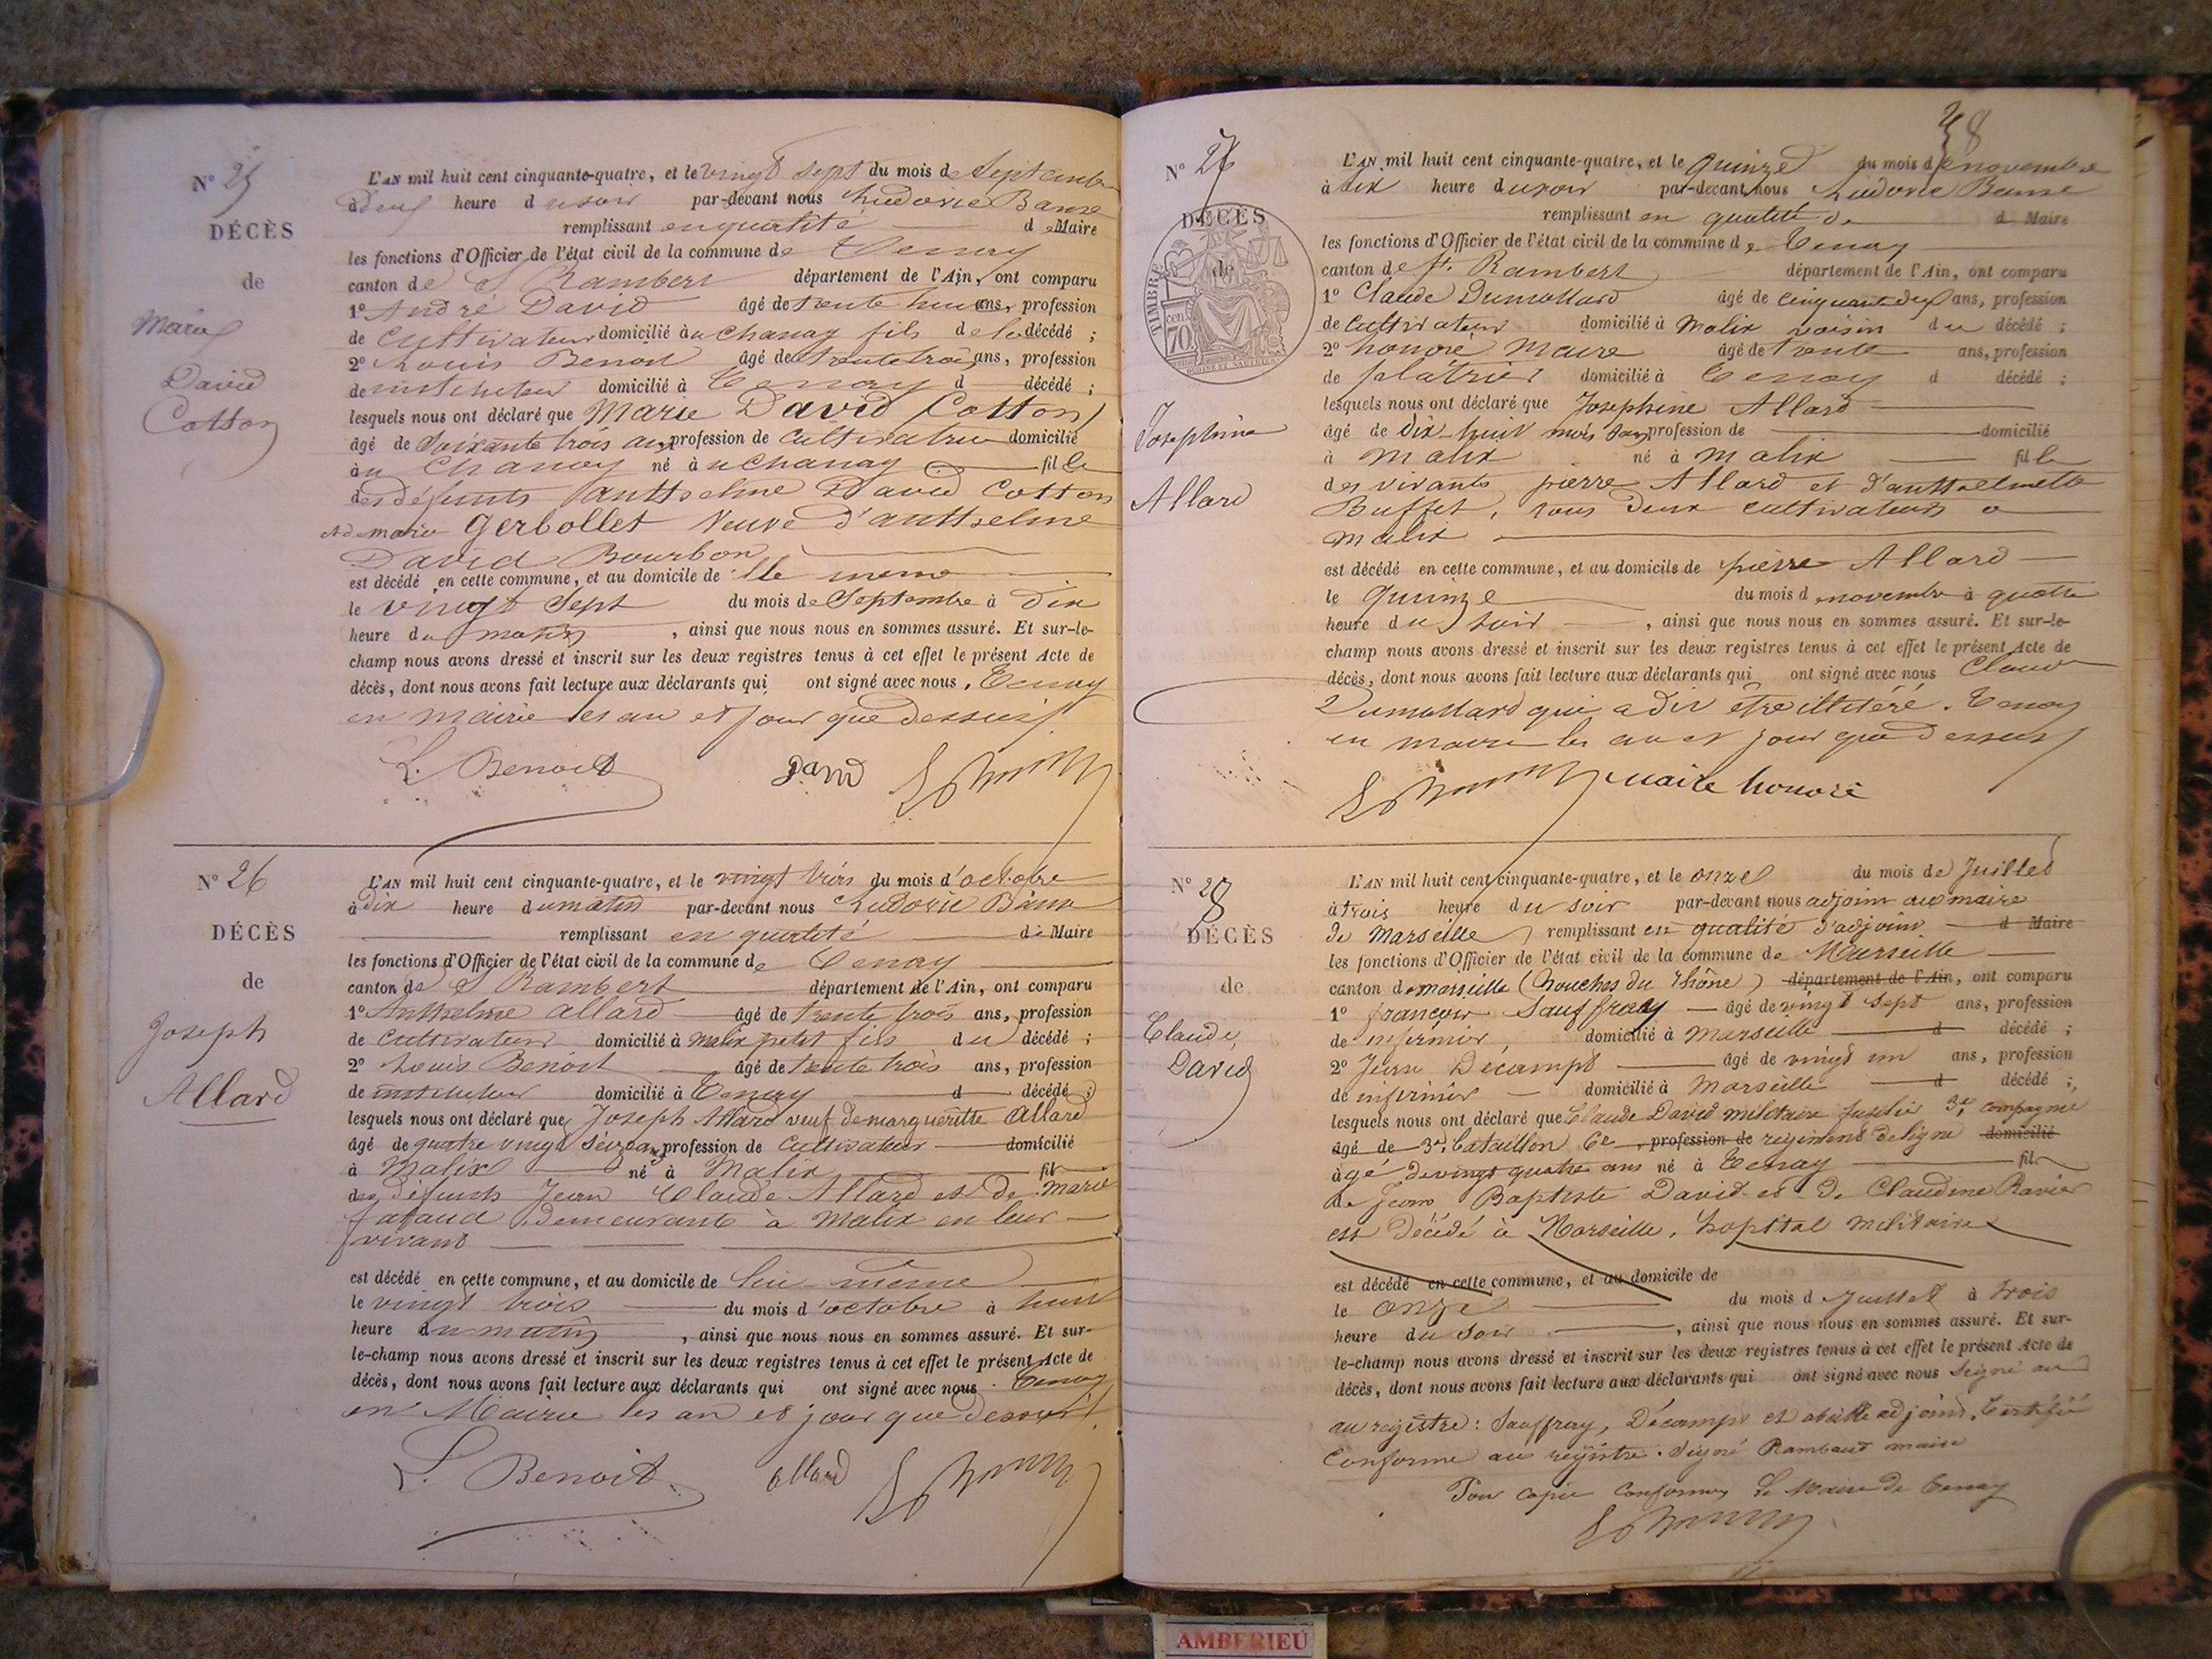 N° 25
DÉCÈS
de
Marie
David
Cotton
L'AN mil huit cent cinquante-quatre, et le vingt sept du mois de Septembre
à deux heure du soir par-devant nous Ludovic
remplissant en qualité de Maire
les fonctions d'Officier de l'état civil de la commune de Tenay
canton de St Rambert département de l'Ain, ont comparu
1° André David âgé de trente ans, profession
de cultivateur domicilié à u chanay fils de la décédé ;
2° Louis Benoit âgé de trente trois ans, profession
de instituteur domicilié à Tenay d décédé ;
lesquels nous ont déclaré que Marie David Cotton
âgé de Soixante trois ans profession de Cultivatrice domicilié
à u Chanay né à u Chanay fille
des défunts antthelme David Cotton
et de marie Gerbollet Veuve d'antthelme
David Bourbon
est décédé en cette commune, et au domicile de elle meme
le vingt Sept du mois de Septembre à Dix
heure du matin, ainsi que nous nous en sommes assuré. Et sur-le-
champ nous avons dressé et inscrit sur les deux registres tenus à cet effet le présent Acte de
décès, dont nous avons fait lecture aux déclarants qui ont signé avec nous, Tenay
en mairie les an et jour que dessus
L. Benoit David
N° 26
DÉCÈS
de
Joseph
Allard
L'AN mil huit cent cinquante-quatre, et le vingt trois du mois d'octobre
à dix heure du matin par-devant nous Ludovic
remplissant en qualité de Maire
les fonctions d'Officier de l'état civil de la commune de Tenay
canton de St Rambert département de l'Ain, ont comparu
1° Anthelme allard âgé de trente trois ans, profession
de Cultivateur domicilié à Malix petit fils du décédé ;
2° Louis Benoit âgé de trente trois ans, profession
de instituteur domicilié à Tenay d décédé ;
lesquels nous ont déclaré que Joseph Allard veuf de margueritte Allard
âgé de quatre vingt seize ans profession de Cultivateur domicilié
à Malix né à Malix fils
des défunts Jean Claude Allard et de Marie
demeurants à Malix en leur
vivant
est décédé en cette commune, et au domicile de lui même
le vingt trois du mois d'octobre à huit
heure du matin, ainsi que nous nous en sommes assuré. Et sur-
le-champ nous avons dressé et inscrit sur les deux registres tenus à cet effet le présent Acte de
décès, dont nous avons fait lecture aux déclarants qui ont signé avec nous. Tenay
en Mairie les an et jour que dessus
L. Benoit allard
28
N° 27
DÉCÈS
de
TIMBRE
70 cent
Josephine
Allard
L'AN mil huit cent cinquante-quatre, et le Quinze du mois de novembre
à six heure du soir par-devant nous Ludovic
remplissant en qualité de d Maire
les fonctions d'Officier de l'état civil de la commune de Tenay
canton de St. Rambert département de l'Ain, ont comparu
1° Claude Dumollard âgé de cinquante deux ans, profession
de cultivateur domicilié à Malix voisin du décédé ;
2° honoré Maire âgé de trente ans, profession
de plâtrier domicilié à Tenay d décédé ;
lesquels nous ont déclaré que Josephine Allard
âgé de dix-huit mois sans profession de domicilié
à Malix né à Malix fille
des vivants pierre Allard et d'antthelmette
Buffet, tous deux cultivateurs a
malix
est décédé en cette commune, et au domicile de pierre Allard
le Quinze du mois de novembre à quatre
heure du soir, ainsi que nous nous en sommes assuré. Et sur-le-
champ nous avons dressé et inscrit sur les deux registres tenus à cet effet le présent Acte de
décès, dont nous avons fait lecture aux déclarants qui ont signé avec nous Claude
Dumollard qui a dit être illitéré. Tenay
en mairie les an et jour que dessus
Maire honoré
N° 28
DÉCÈS
de
Claude
David
L'AN mil huit cent cinquante-quatre, et le onze du mois de Juillet
à trois heure du soir par-devant nous adjoint au maire
de Marseille remplissant en qualité d'adjoint d Maire
les fonctions d'Officier de l'état civil de la commune de Marseille
canton de marseille (bouches du rhône) département de l'Ain, ont comparu
1° françois Sauffray âgé de vingt sept ans, profession
de infirmier, domicilié à marseille d décédé ;
2° Jean Décamps âgé de vingt un ans, profession
de infirmier domicilié à Marseille d décédé ;
lesquels nous ont déclaré que Claude David militaire fusilier 3e compagnie
âgé de 3e bataillon 6e profession de régiment de ligne domicilié
âgé de vingt quatre ans né à Tenay fils
de Jean Baptiste David et de Claudine Ravier
est décédé à Marseille, hopital militaire
est décédé en cette commune, et au domicile de
le onze du mois de Juillet à trois
heure du soir, ainsi que nous nous en sommes assuré. Et sur-
le-champ nous avons dressé et inscrit sur les deux registres tenus à cet effet le présent Acte de
décès, dont nous avons fait lecture aux déclarants qui ont signé avec nous Signé au
au registre : Sauffray, Décamps et adjoint. Certifié
Conforme au registre. Signé Rambaud maire
Pour copie conforme, Le Maire de Tenay
AMBERIEU